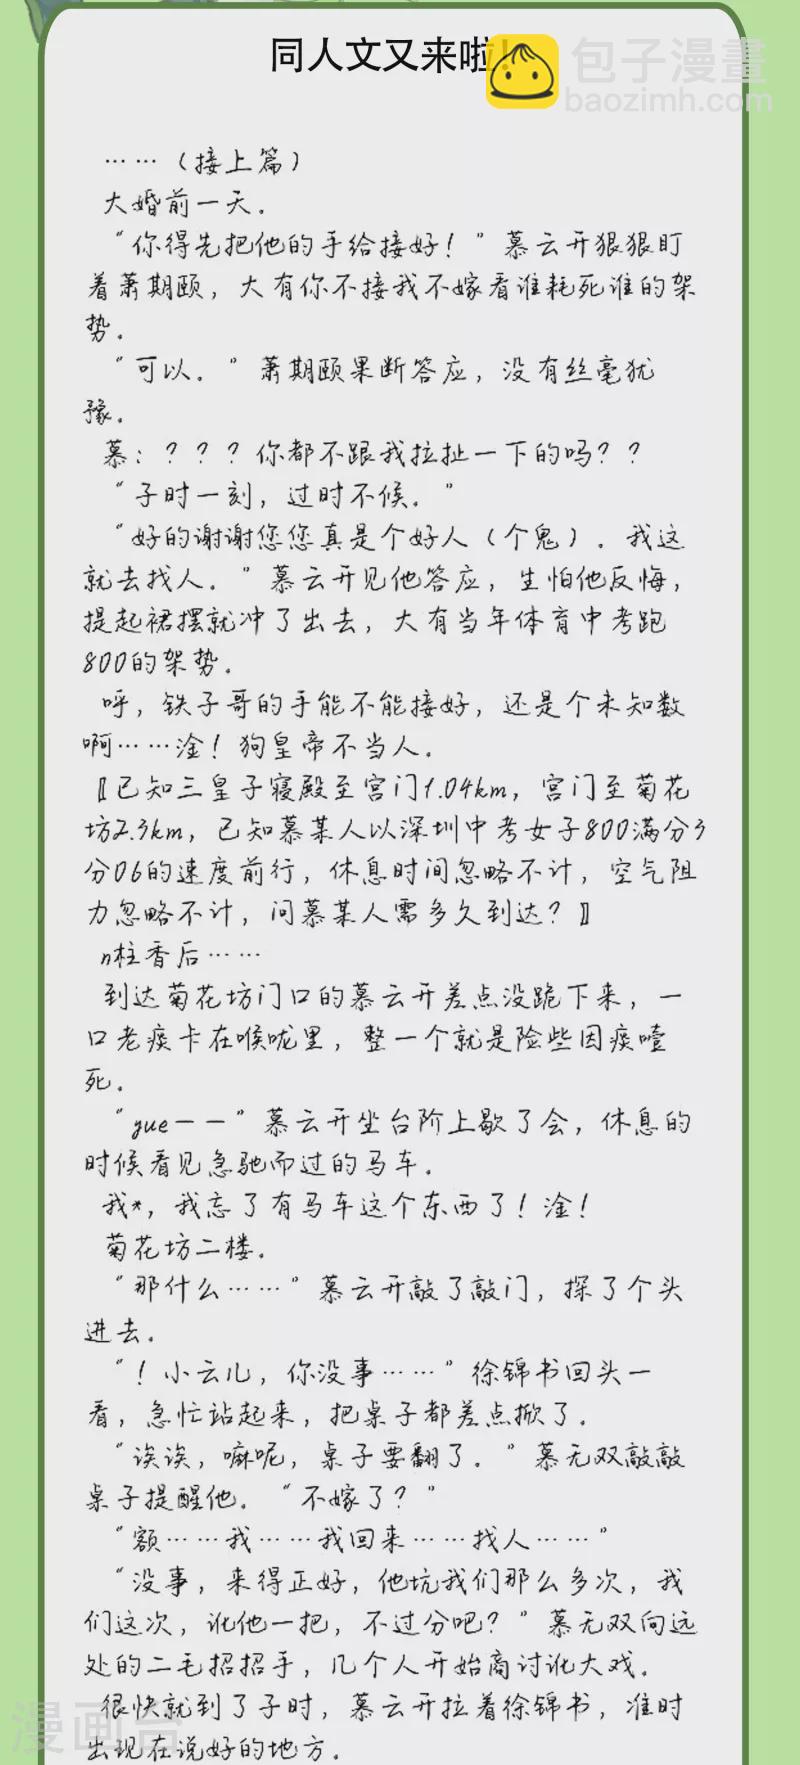 同人文又来啦!
包子漫畫
baozimh.com
……（接上篇）
大婚前一天.
“你得先把他的手给接好！”慕云开狠狠盯
着萧期颐，大有你不接我不嫁看谁耗死谁的架
势.
“可以.”萧期颐果断答应，没有丝毫犹
豫.
慕：？？？你都不跟我拉扯一下的吗？？
“子时一刻，过时不候.”
“好的谢谢您您真是个好人（个鬼）.我这
就去找人.”慕云开见他答应，生怕他反悔，
提起裙摆就冲了出去，大有当年体育中考跑
800的架势.
呼，铁子哥的手能不能接好，还是个未知数
啊……淦！狗皇帝不当人.
〖已知三皇子寝殿至宫门1.04km，宫门至菊花
坊2.3km，已知慕某人以深圳中考女子800满分3
分06的速度前行，休息时间忽略不计，空气阻
力忽略不计，问慕某人需多久到达？〗
n柱香后……
到达菊花坊门口的慕云开差点没跪下来，一
口老痰卡在喉咙里，整一个就是险些因痰噎
死.
“yue——”慕云开坐台阶上歇了会，休息的
时候看见急驰而过的马车.
我*，我忘了有马车这个东西了！淦！
菊花坊二楼.
“那什么……”慕云开敲了敲门，探了个头
进去.
“！小云儿，你没事……”徐锦书回头一
看，急忙站起来，把桌子都差点掀了.
“诶诶，嘛呢，桌子要翻了.”慕无双敲敲
桌子提醒他.“不嫁了？”
“额……我……我回来……找人……”
“没事，来得正好，他坑我们那么多次，我
们这次，讹他一把，不过分吧？”慕无双向远
处的二毛招招手，几个人开始商讨讹大戏.
很快就到了子时，慕云开拉着徐锦书，准时
出现在说好的地方.
漫画台